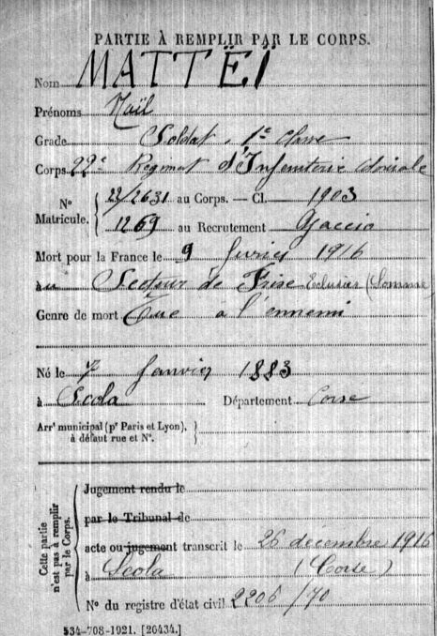 PARTIE À REMPLIR PAR LE CORPS.
Nom MATTËÏ
Prénoms Naïl
Grade Soldat, 1e Classe
Corps 22e Régiment d'Infanterie Coloniale
N° Matricule. { 22/2631 au Corps. — Cl. 1903
1269 au Recrutement Ajaccio
Mort pour la France le 9 février 1916
au Secteur de Frise Eclusier (Somme)
Genre de mort Tué à l'ennemi
Né le 7 Janvier 1883
à Scola Département Corse
Arrt municipal (pr Paris et Lyon), à défaut rue et N°. }
Cette partie n'est pas à remplir par le Corps.
Jugement rendu le
par le Tribunal de
acte ou jugement transcrit le 26 décembre 1916
à Scola (Corse)
N° du registre d'état civil 2206/70
534-708-1921. [26434.]